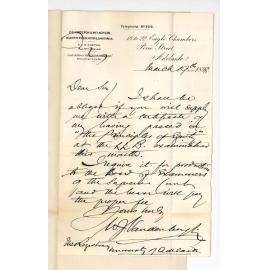 Telephone
18 to 22 Eagle Chambers
Pirie Street
Adelaide
March 19th
Dear Sir/
I shall be
obliged if you will supply
me with a certificate of
my having passed in
"the Principles of Equity"
at the LL.B. examination
this month.
I require it for production
to the Board of Examiners
of the Supreme Court
and the bearer will pay
the proper fee.
Yours truly
The Registrar
University of Adelaide